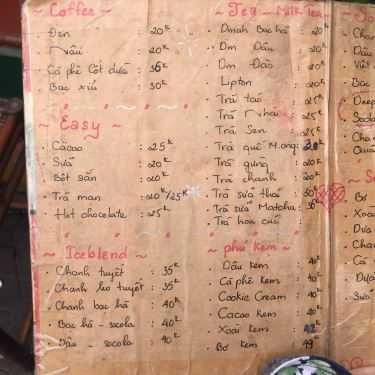 ~ Coffee ~
. Đen 20K
. Nâu 20K
. Cà phê Cốt dừa : 35K
. Bạc xỉu : 30K
~ Easy ~
. Cacao : 25K
. Sữa : 20K
. Bột sắn : 20K
. Trà man : 20K/25K
. Hot chocolate : 25K
~ Iceblend ~
. Chanh tuyết : 35K
. Chanh leo tuyết : 35K
. Chanh bạc hà : 40K
. Bạc hà - socola : 40K
. Dâu - socola : 40K
~ Tea - Milk Tea
. Dmah Bạc hà : 20K
. Dm Dâu : 20K
. Dm Đào : 20K
. Lipton : 20K
. Trà táo : 25K
. Trà Nhài : 20K
. Trà Sen : 25K
. Trà quế M.ong : 20K
. Trà gừng : 20K
. Trà chanh : 20K
. Trà sữa thái : 30K
. Trà sữa Matcha : 30K
. Trà hoa cúc :
~ phú kem ~
. Dâu kem : 40K
. Cà phê kem : 40K
. Cookie Cream : 40K
. Cacao kem : 40K
. Xoài kem :
. Bơ kem :